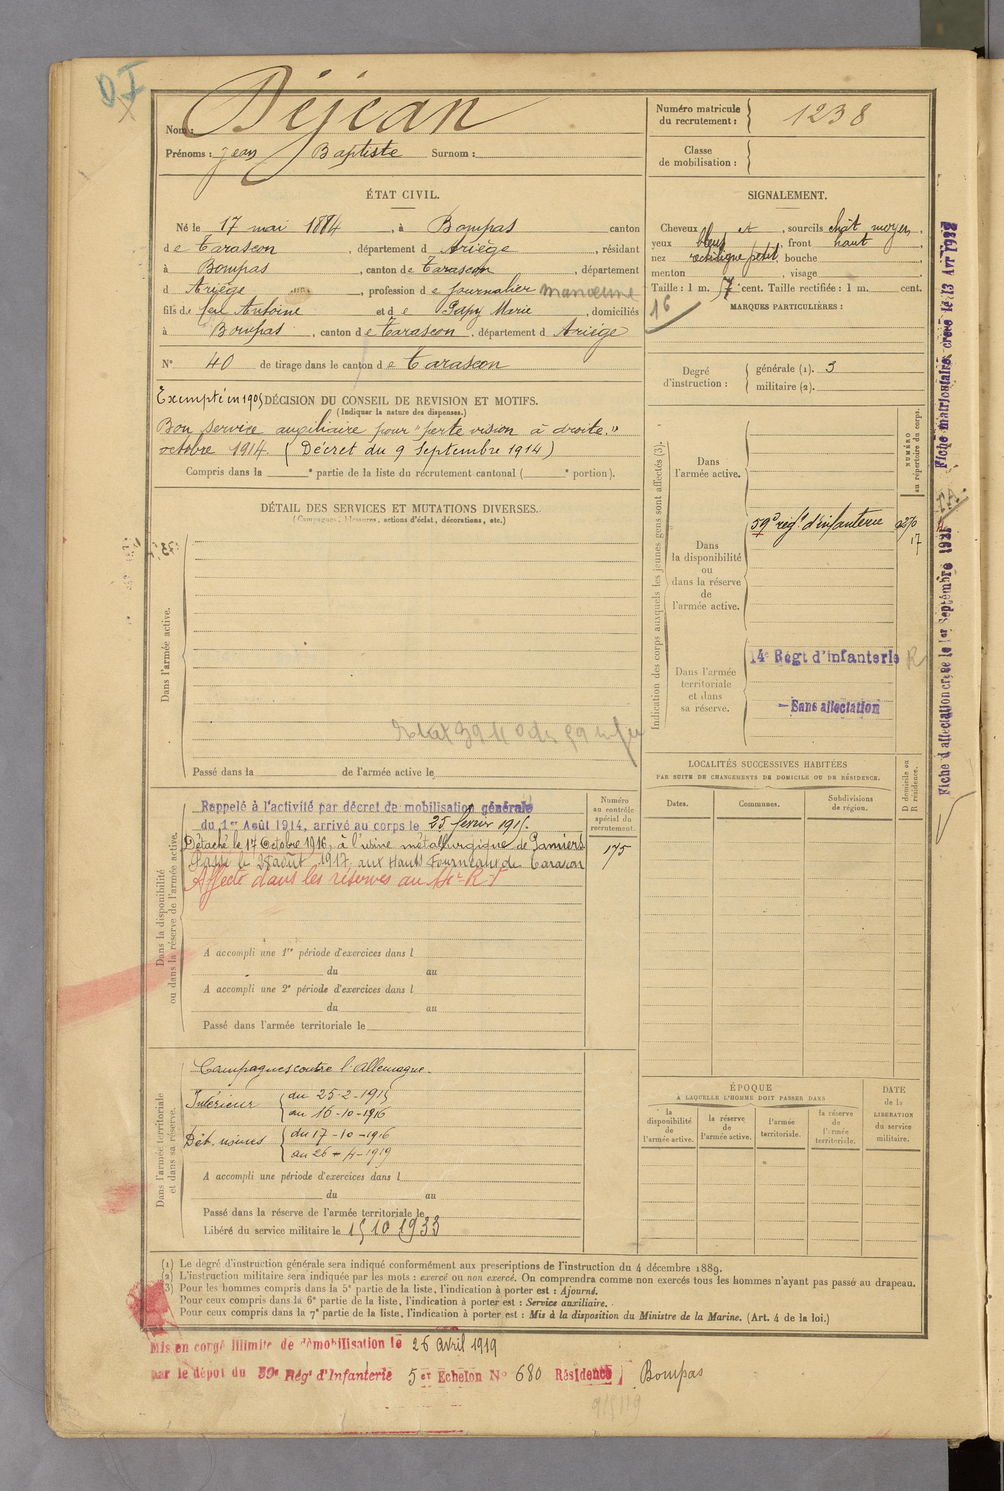 DJ
Nom : Déjean
Prénoms : Jean Baptiste Surnom :
Numéro matricule du recrutement : 1238
Classe de mobilisation :
ÉTAT CIVIL.
Né le 17 mai 1884, à Bompas canton
de Tarascon, département d Ariège, résidant
à Bompas, canton de Tarascon, département
d Ariège, profession de journalier manœuvre
fils de feu Antoine et de Papy Marie, domiciliés
à Bompas, canton de Tarascon, département d Ariège
N° 40 de tirage dans le canton de Tarascon
SIGNALEMENT.
Cheveux et, sourcils chât moyen,
yeux bleus, front haut,
nez rectiligne petit, bouche
menton, visage
Taille : 1 m. 57 cent. Taille rectifiée : 1 m. cent.
16
MARQUES PARTICULIÈRES :
Degré d'instruction : générale (1). 3
militaire (2).
Exempté en 1905 DÉCISION DU CONSEIL DE REVISION ET MOTIFS.
(Indiquer la nature des dispenses.)
Bon service auxiliaire pour "perte vision à droite."
octobre 1914. (Décret du 9 Septembre 1914)
Compris dans la e partie de la liste du recrutement cantonal ( e portion).
DÉTAIL DES SERVICES ET MUTATIONS DIVERSES.
(Campagnes, blessures, actions d'éclat, décorations, etc.)
Dans l'armée active.
Passé dans la de l'armée active le
Indication des corps auxquels les jeunes gens sont affectés (3).
NUMÉRO au répertoire du corps.
Dans l'armée active.
Dans la disponibilité ou dans la réserve de l'armée active.
59e régt d'infanterie
17
Dans l'armée territoriale et dans sa réserve.
14e Régt d'infanterie R
—Sans affectation
LOCALITÉS SUCCESSIVES HABITÉES
PAR SUITE DE CHANGEMENTS DE DOMICILE OU DE RÉSIDENCE.
D domicile ou R résidence.
Dates. Communes. Subdivisions de région.
Dans la disponibilité ou dans la réserve de l'armée active.
Numéro au contrôle spécial du recrutement
175
Rappelé à l'activité par décret de mobilisation générale
du 1er Août 1914, arrivé au corps le 25 février 1915.
Détaché le 17 Octobre 1916, à l'usine métallurgique de Pamiers
Passé le 25 août 1917 aux Hauts Fourneaux de Tarascon
Affecté dans les réserves au 14e R.I
A accompli une 1re période d'exercices dans l
du au
A accompli une 2e période d'exercices dans l
du au
Passé dans l'armée territoriale le
Dans l'armée territoriale et dans sa réserve.
Campagnes contre l'Allemagne.
Intérieur du 25-2-1915
au 16-10-1916
Dét. usines du 17-10-1916
au 26-4-1919
A accompli une période d'exercices dans l
du au
Passé dans la réserve de l'armée territoriale le
Libéré du service militaire le 15 10 1933
ÉPOQUE
À LAQUELLE L'HOMME DOIT PASSER DANS
la disponibilité de l'armée active. la réserve de l'armée active. l'armée territoriale. la réserve de l'armée territoriale.
DATE de la LIBÉRATION du service militaire.
(1) Le degré d'instruction générale sera indiqué conformément aux prescriptions de l'instruction du 4 décembre 1889.
(2) L'instruction militaire sera indiquée par les mots : exercé ou non exercé. On comprendra comme non exercés tous les hommes n'ayant pas passé au drapeau.
(3) Pour les hommes compris dans la 5e partie de la liste, l'indication à porter est : Ajourné.
Pour ceux compris dans la 6e partie de la liste, l'indication à porter est : Service auxiliaire.
Pour ceux compris dans la 7e partie de la liste, l'indication à porter est : Mis à la disposition du Ministre de la Marine. (Art. 4 de la loi.)
Mis en congé illimité de démobilisation le 26 avril 1919
par le dépôt du 59e Régt d'Infanterie 5 et Echelon N° 680 Résidence Bompas
Fiche matriculaire créée le 13 Avr 1922
Fiche d'affectation créée le 1er Septembre 1921